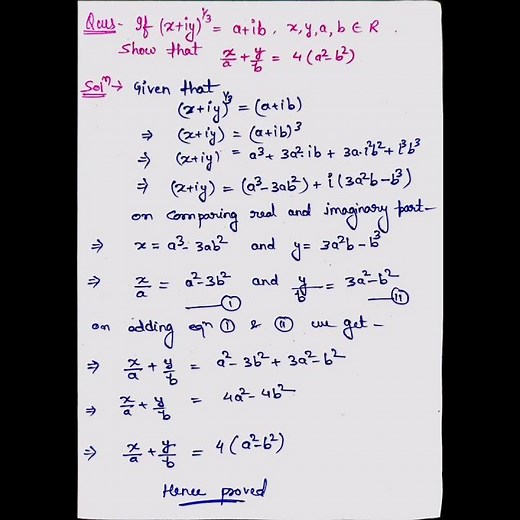 Ques- If (x+iy)^1/3 = a+ib, x,y,a,b ∈ R.
Show that x/a + y/b = 4(a²-b²)
Solⁿ → Given that
(x+iy)^1/3 = (a+ib)
⇒ (x+iy) = (a+ib)³
⇒ (x+iy) = a³+3a²·ib + 3a·i²b²+i³b³
⇒ (x+iy) = (a³-3ab²)+i(3a²b-b³)
on comparing real and imaginary part-
⇒ x = a³-3ab² and y = 3a²b-b³
⇒ x/a = a²-3b² and y/b = 3a²-b²
—(I) —(II)
on adding eqn (I) & (II) we get-
⇒ x/a + y/b = a²-3b²+3a²-b²
⇒ x/a + y/b = 4a²-4b²
⇒ x/a + y/b = 4(a²-b²)
Hence proved